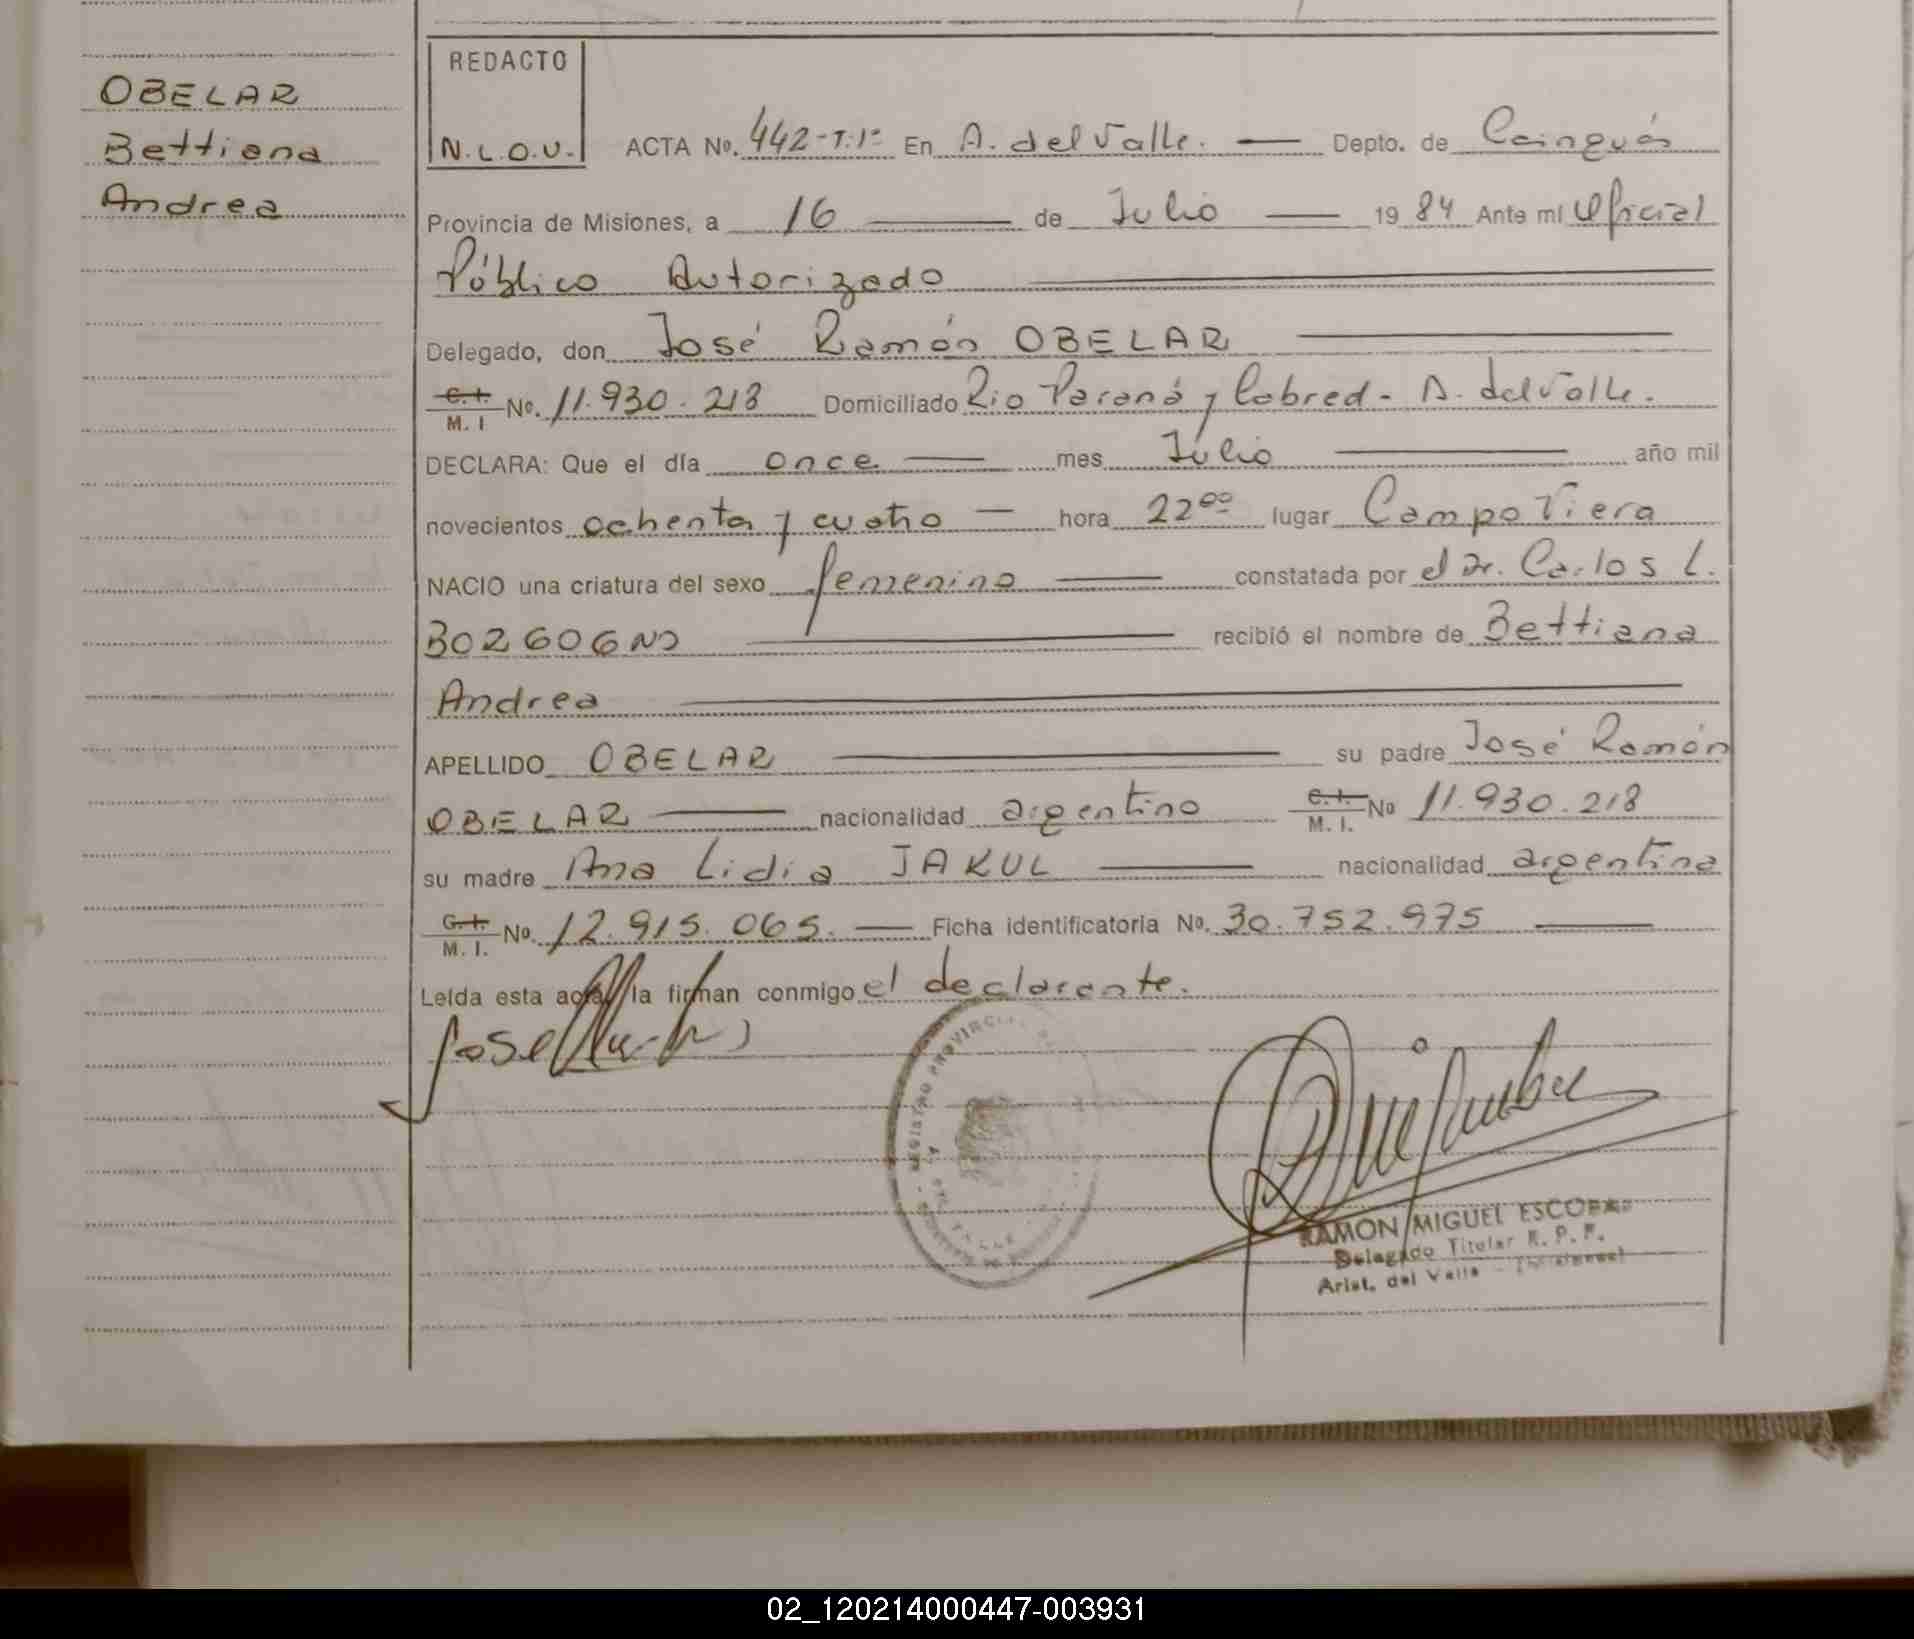 OBELAR
Bettiana
Andrea
REDACTO
N.L.O.U.
ACTA No. 442-T.1º En A. del Valle. Depto. de Cainguás
Provincia de Misiones, a 16 de Julio 1984 Ante mí Oficial
Público Autorizado
Delegado, don José Ramón OBELAR
C.I. M.I No. 11.930.218 Domiciliado Rio Paraná y Cabred - A. del Valle.
DECLARA: Que el día once mes Julio año mil
novecientos ochenta y cuatro hora 22⁰⁰ lugar Campo Viera
NACIO una criatura del sexo femenino constatada por el Dr. Carlos L.
recibió el nombre de Bettiana
Andrea
APELLIDO OBELAR su padre José Ramón
OBELAR nacionalidad argentino C.I. M.I. No 11.930.218
su madre Ana Lidia JAKUL nacionalidad argentina
C.I. M.I. No. 12.915.065. Ficha identificatoria No. 30.752.975
Leída esta acta, la firman conmigo el declarante.
Jose
REGISTRO PROVINCIAL
DEL VALLE
RAMON MIGUEL ESCOBAR
Delegado Titular R. P. P.
Arist. del Valle
02_120214000447-003931